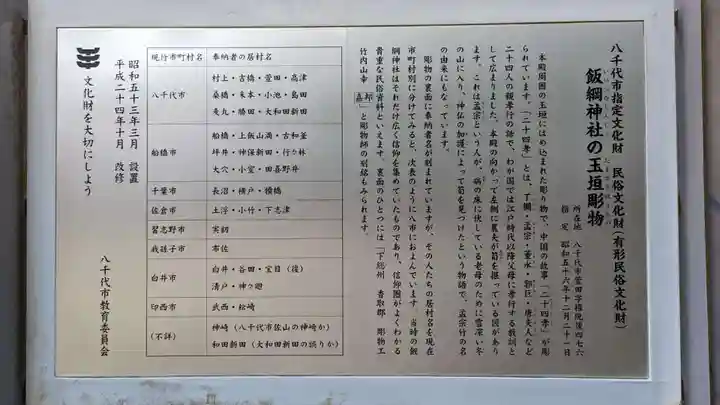 八千代市指定文化財　民俗文化財(有形民俗文化財)
飯綱神社の玉垣彫物
所在地　八千代市萱田字権現後四七六
指定　昭和五十六年十二月二十一日
本殿周囲の玉垣にはめ込まれた彫り物で、中国の故事「二十四孝」が彫
られています。「二十四孝」とは、丁蘭・孟宗・董永・郭巨・唐夫人など
二十四人の親孝行の話で、わが国では江戸時代以降父母に孝行する教訓と
して広まりました。本殿の向かって左側に農夫が筍を掘っている図があり
ます。これは孟宗という人が、病の床に伏している老母のために雪深い冬
の山に入り、神仏の加護によって筍を見つけたという物語で、孟宗竹の名
の由来にもなっています。
彫物の裏面に奉納者名が刻まれていますが、その人たちの居村名を現在
市町村別に分けてみると、次表のように八市におよんでいます。当時の飯
綱神社はそれだけ広く信仰を集めていたものであり、信仰圏がよくわかる
貴重な民俗資料といえます。裏面のひとつには「下総州　香取郡　彫物工
竹内山幸　嘉都」と彫物師の刻銘もみられます。
現行市町村名　奉納者の居村名
八千代市　村上・吉橋・萱田・高津
桑橋・米本・小池・島田
麦丸・勝田・大和田新田
船橋市　船橋・上飯山満・古和釜
坪井・神保新田・行々林
大穴・小室・田喜野井
千葉市　長沼・横戸・横橋
佐倉市　土浮・小竹・下志津
習志野市　実籾
我孫子市　布佐
白井市　白井・谷田・富目(後)
清戸・神々廻
印西市　武西・松崎
(不詳)　神崎(八千代市佐山の神崎か)
和田新田(大和田新田の誤りか)
昭和五十三年三月　設置
平成二十四年十月　改修
文化財を大切にしよう
八千代市教育委員会